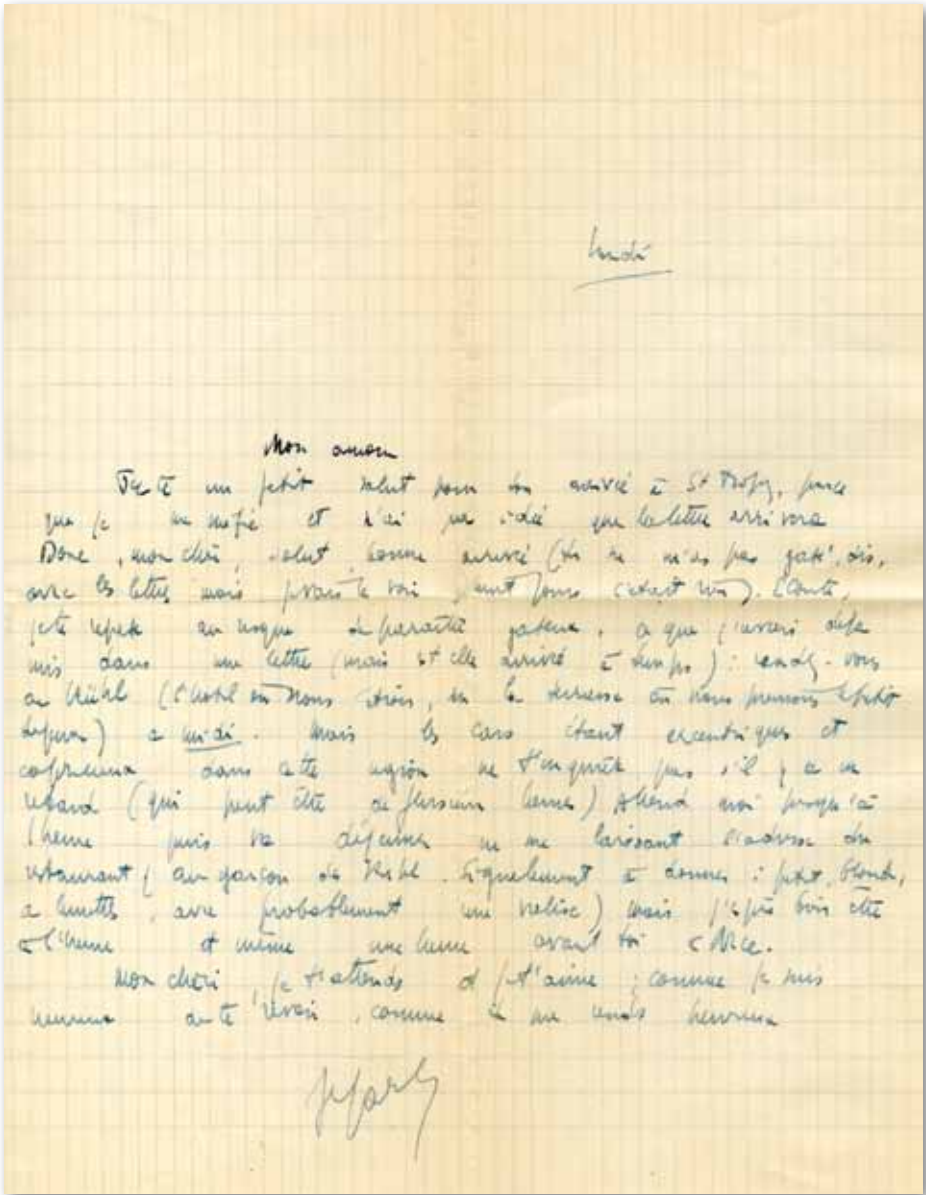 Lundi
Mon amour
Juste un petit salut pour ton arrivée à St Tropez, parce
que je me méfie et n'ai pas idée que la lettre arrivera
Donc, mon chéri, salut, bonne arrivée (tu ne m'as pas gaté, dis,
avec les lettres mais
je te répète au risque de paraître gateux, ce que j'avais déjà
mis dans une lettre (mais est elle arrivée à temps) : rendez-vous
au Ruhl (l'hotel où nous étions, sur la terrasse où nous prenions le petit
déjeuner) a midi. Mais les cars étant excentriques et
capricieux dans cette région ne t'inquiète pas s'il y a un
retard (qui peut être de plusieurs heures) Attend moi jusqu'à
1 heure puis va déjeuner en me laissant l'adresse du
restaurant (au garçon de l'hotel. Signalement à donner : petit, blond,
a lunettes, avec probablement une valise) mais j'espère bien être
à l'heure et même une heure avant toi à Nice.
Mon chéri, je t'attends et je t'aime ; comme je suis
heureux de te revoir, comme tu me rends heureux